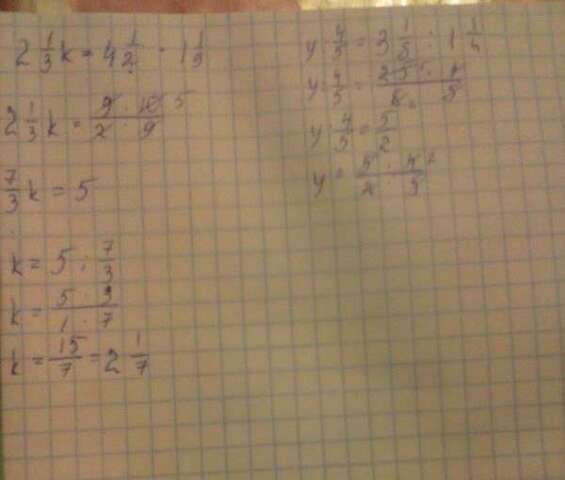 2 1/3 k = 4 1/2 · 1 1/9
2 1/3 k = 9 · 10 5 / 2 · 9
7/3 k = 5
k = 5 : 7/3
k = 5 · 3 / 1 · 7
k = 15/7 = 2 1/7
y : 4/5 = 3 1/8 : 1 1/4
y : 4/5 = 25 · 4 / 8 · 5
y : 4/5 = 5/2
y = 5 · 4 2 / 2 · 5